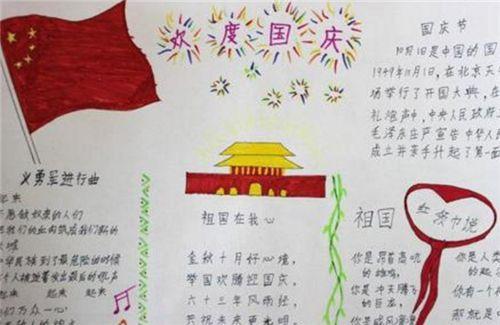 欢度国庆
国庆节
10月1日是中国的国
1949年11月1日,在北京天
场举行了开国大典,在
礼炮声中,中央人民政府
毛泽东庄严宣告中华人
成立并亲手升起了第一面
义勇军进行曲
起来
不愿做奴隶的人们
我们的血肉筑成我们新的
城
华民族到了最危险的时候
个人被迫着发出最后的吼声
起来 起来
们万众一心
祖国在我心
金秋十月好心境,
举国欢腾迎国庆,
六十三年风雨轻,
共祝未来更光明
祖国
你是昂首高吭
的雄鸡,
你是冲天腾飞
的巨龙,
你是威风凛凛
你是人类
的起
你就是